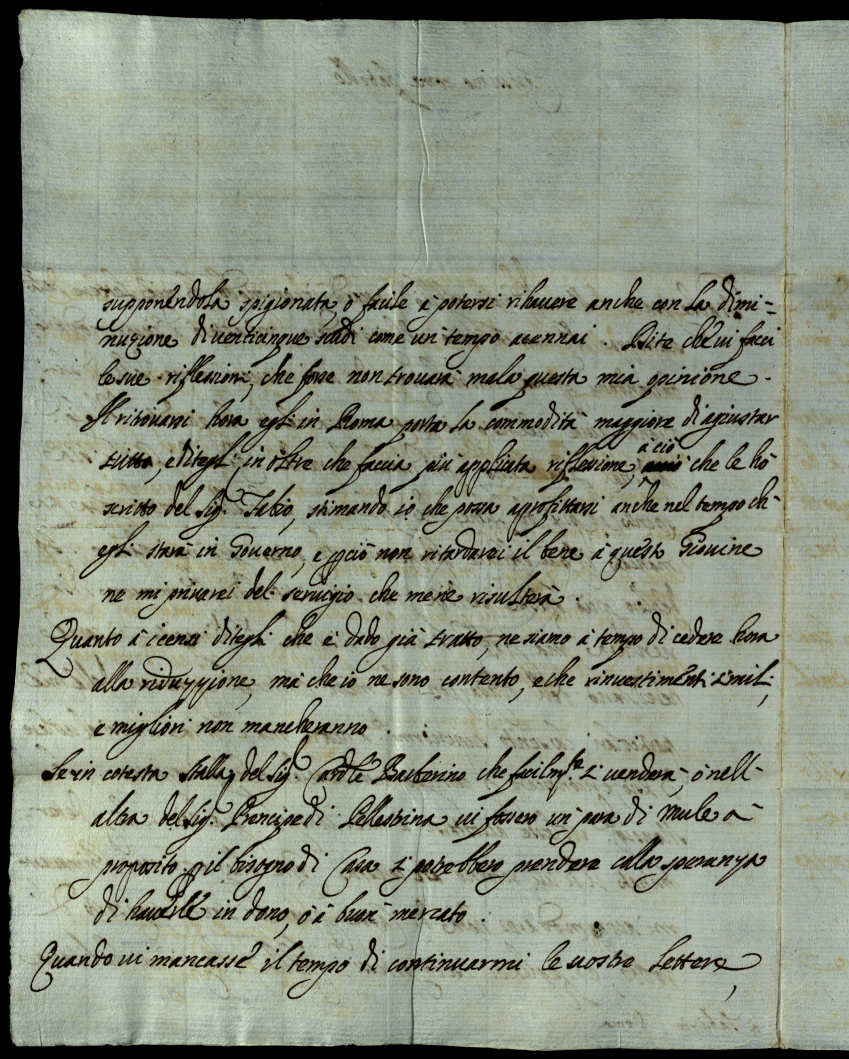 supponendola spigionata, ò facile à potersi rihavere anche con la dimi=
nuzione di venticinque scudi come un tempo acennai. Dite che vi facci
le sue riflessioni, che forse non trovarà mala questa mia opinione.
Il ritrovarsi hora egli in Roma porta la commodità maggiore di agiustar
tutto, e ditegli in oltre che faccia più applicata riflessione, à ciò che le hò
scritto del Sig.r Fabio, stimando io che possa aprofittarsi anche nel tempo ch'
egli starà in Governo, e perciò non ritardarei il bene à questo Giovine
ne mi privarei del servigio che me ne risulterà.
Quanto à i censi ditegli che è dado già tratto, ne siamo à tempo di cedere hora
alla riduzzione, mà che io ne sono contento, e che rinvestimenti simili,
e migliori non mancheranno.
Se in cotesta stalla del Sig.r Card.le Barberino che facilm.te si venderà, ò nell'
altra del Sig.r Principe di Pellestrina vi fossero un para di mule à
proposito per il bisogno di Casa si potrebbero prendere colla speranza
di haverle in dono, ò à buon mercato.
Quando vi mancasse il tempo di continuarmi le vostre lettere,